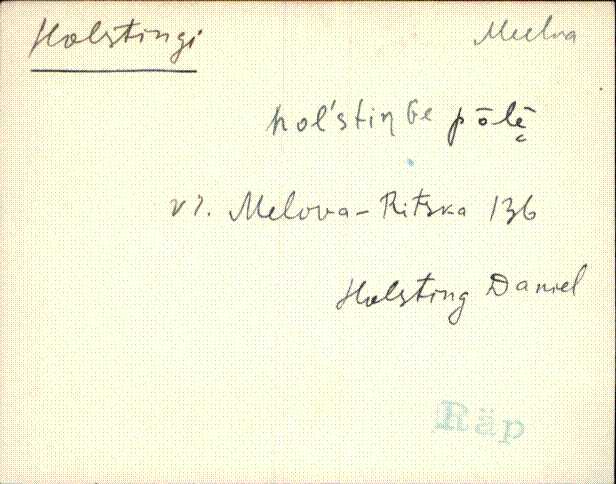 Holstingi
Meelva
hol'stiŋɢe pōlè̬
vr. Melova-Ritska 136
Holsting Daniel
Räp